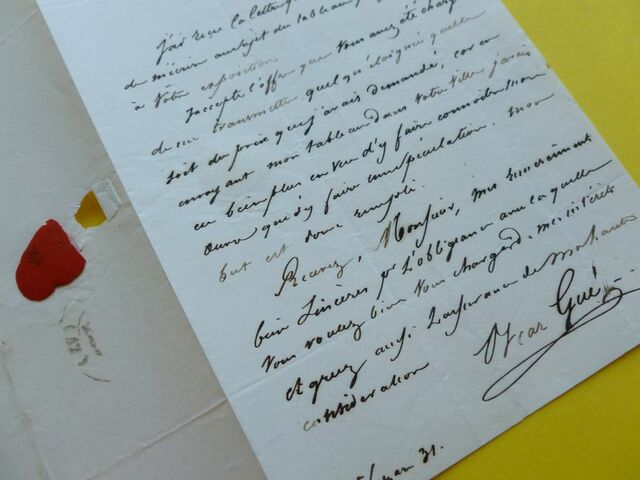 J'ai reçu la lettre q
de m'écrire au sujet du tableau
à votre exposition.
J'accepte l'offre que vous avez été charg
de me transmettre quelqu'éloignée quelle
soit du prix que j'avais demandé, car en
envoyant mon tableau dans votre ville j'avais
eu bien plus en vue d'y faire connaitre mon
œuvre que d'y faire une spéculation. mon
but est donc rempli.
Recevez, Monsieur, mes remerciments
bien sincères pr l'obligeance avec laquelle
vous voulez bien vous charger de mes intérêts
et agréez aussi l'assurance de ma haute
considération
Oscar Gué
31.